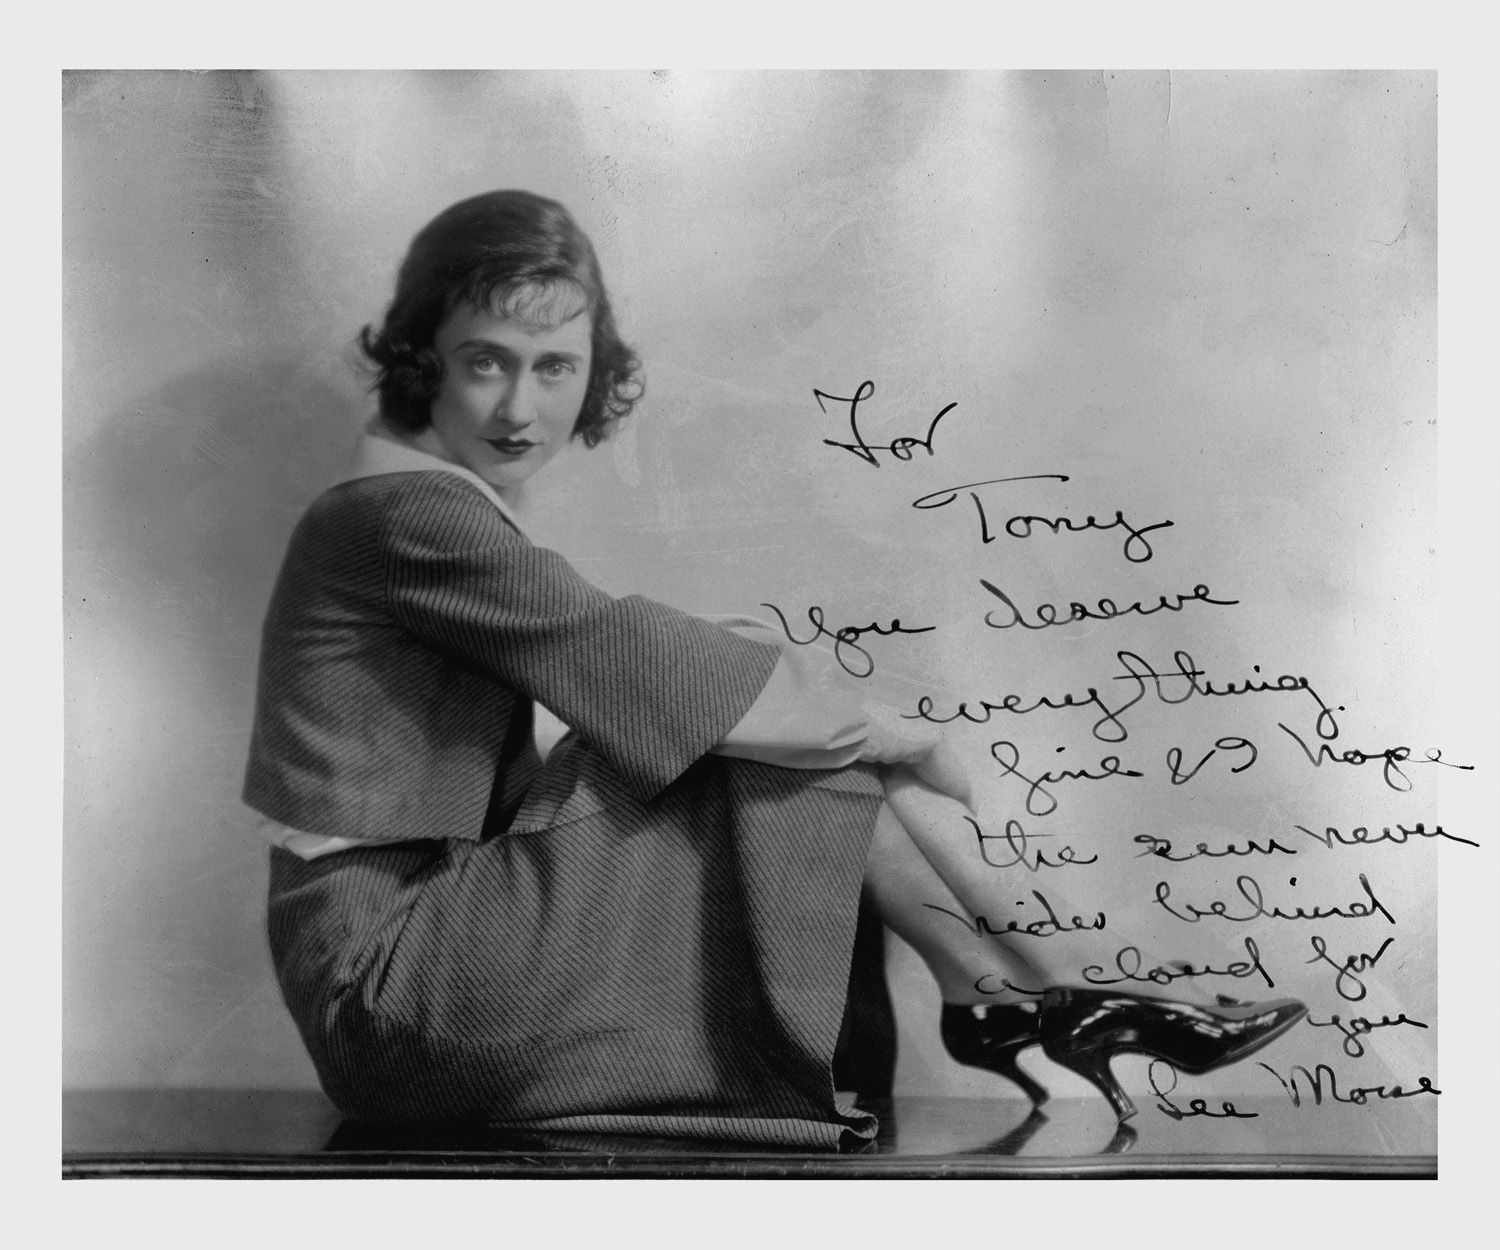 For
Tony
You deserve
everything.
fine & I hope
the sun never
hides behind
a cloud for
you
Lee Morse